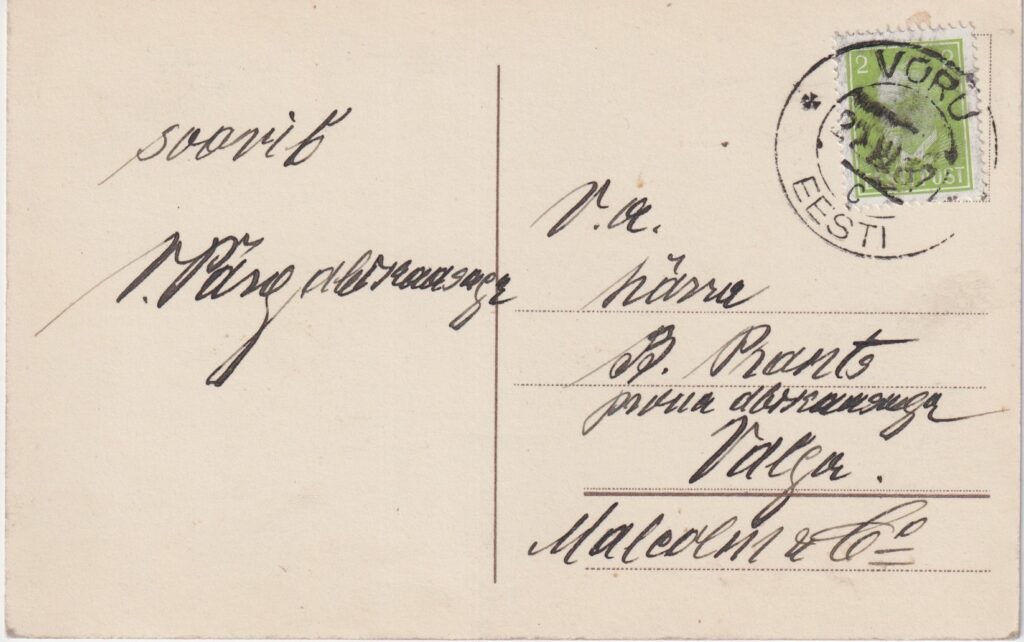 soovib
V. Pärg abikaasaga
VÕRU
EESTI
C
2
POST
V. a.
härra
B. Prants
prova abikaasaga
Valga.
Malcolm & Co